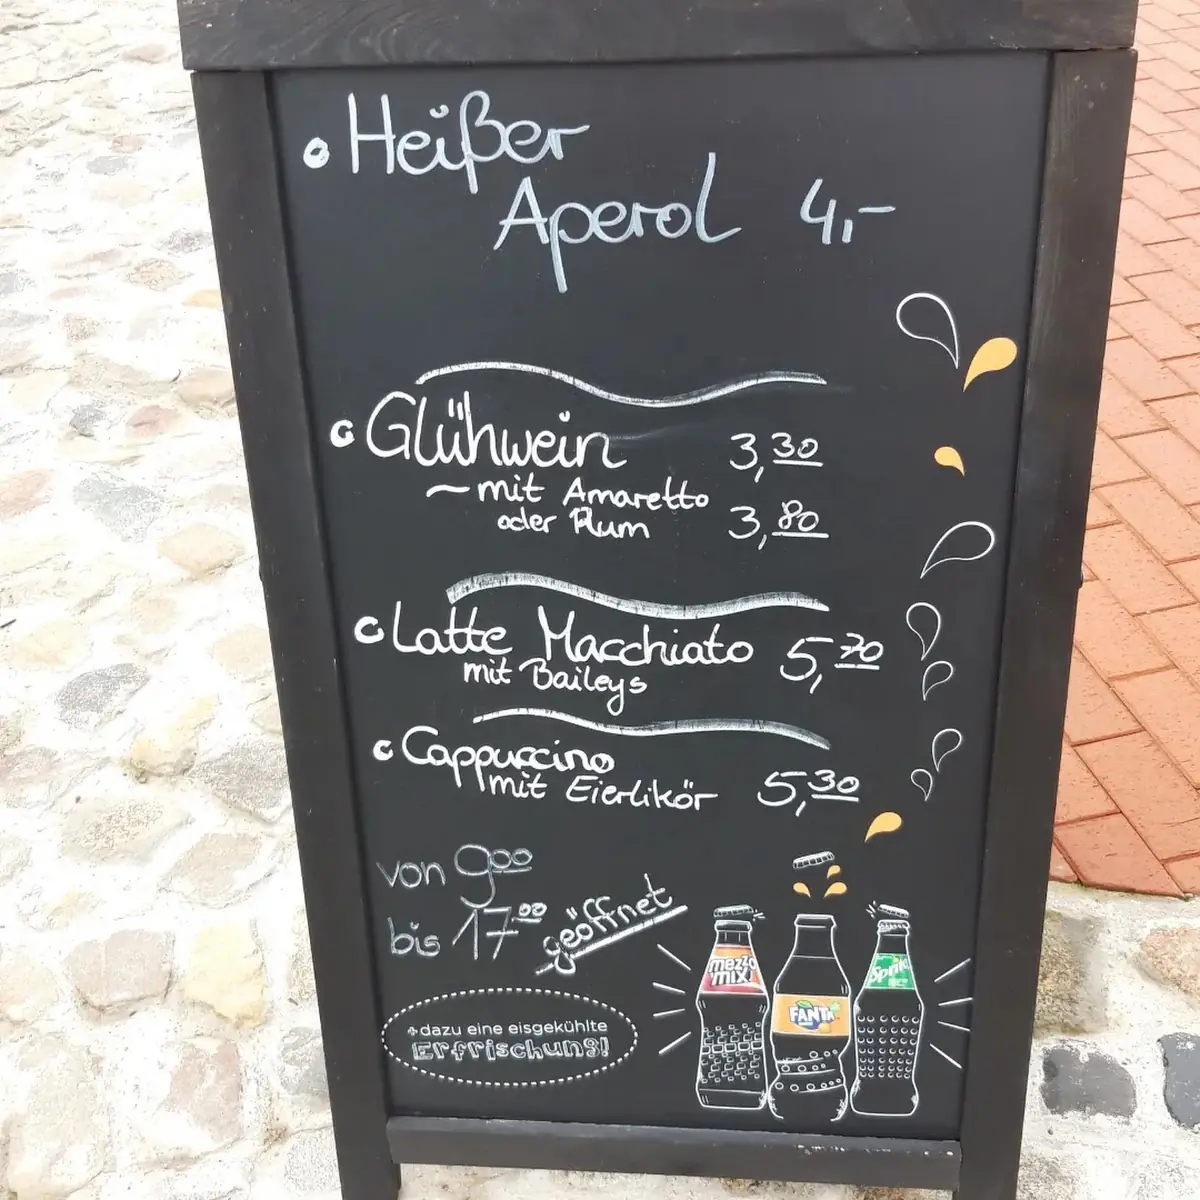 Heißer
Aperol 4,-
Glühwein 3,30
~ mit Amaretto
oder Rum 3,80
Latte Macchiato 5,70
mit Baileys
Cappuccino
mit Eierlikör 5,30
von 9 00
bis 17 00 geöffnet
+dazu eine eisgekühlte
Erfrischung!
mezzo mix
FANTA
Sprite